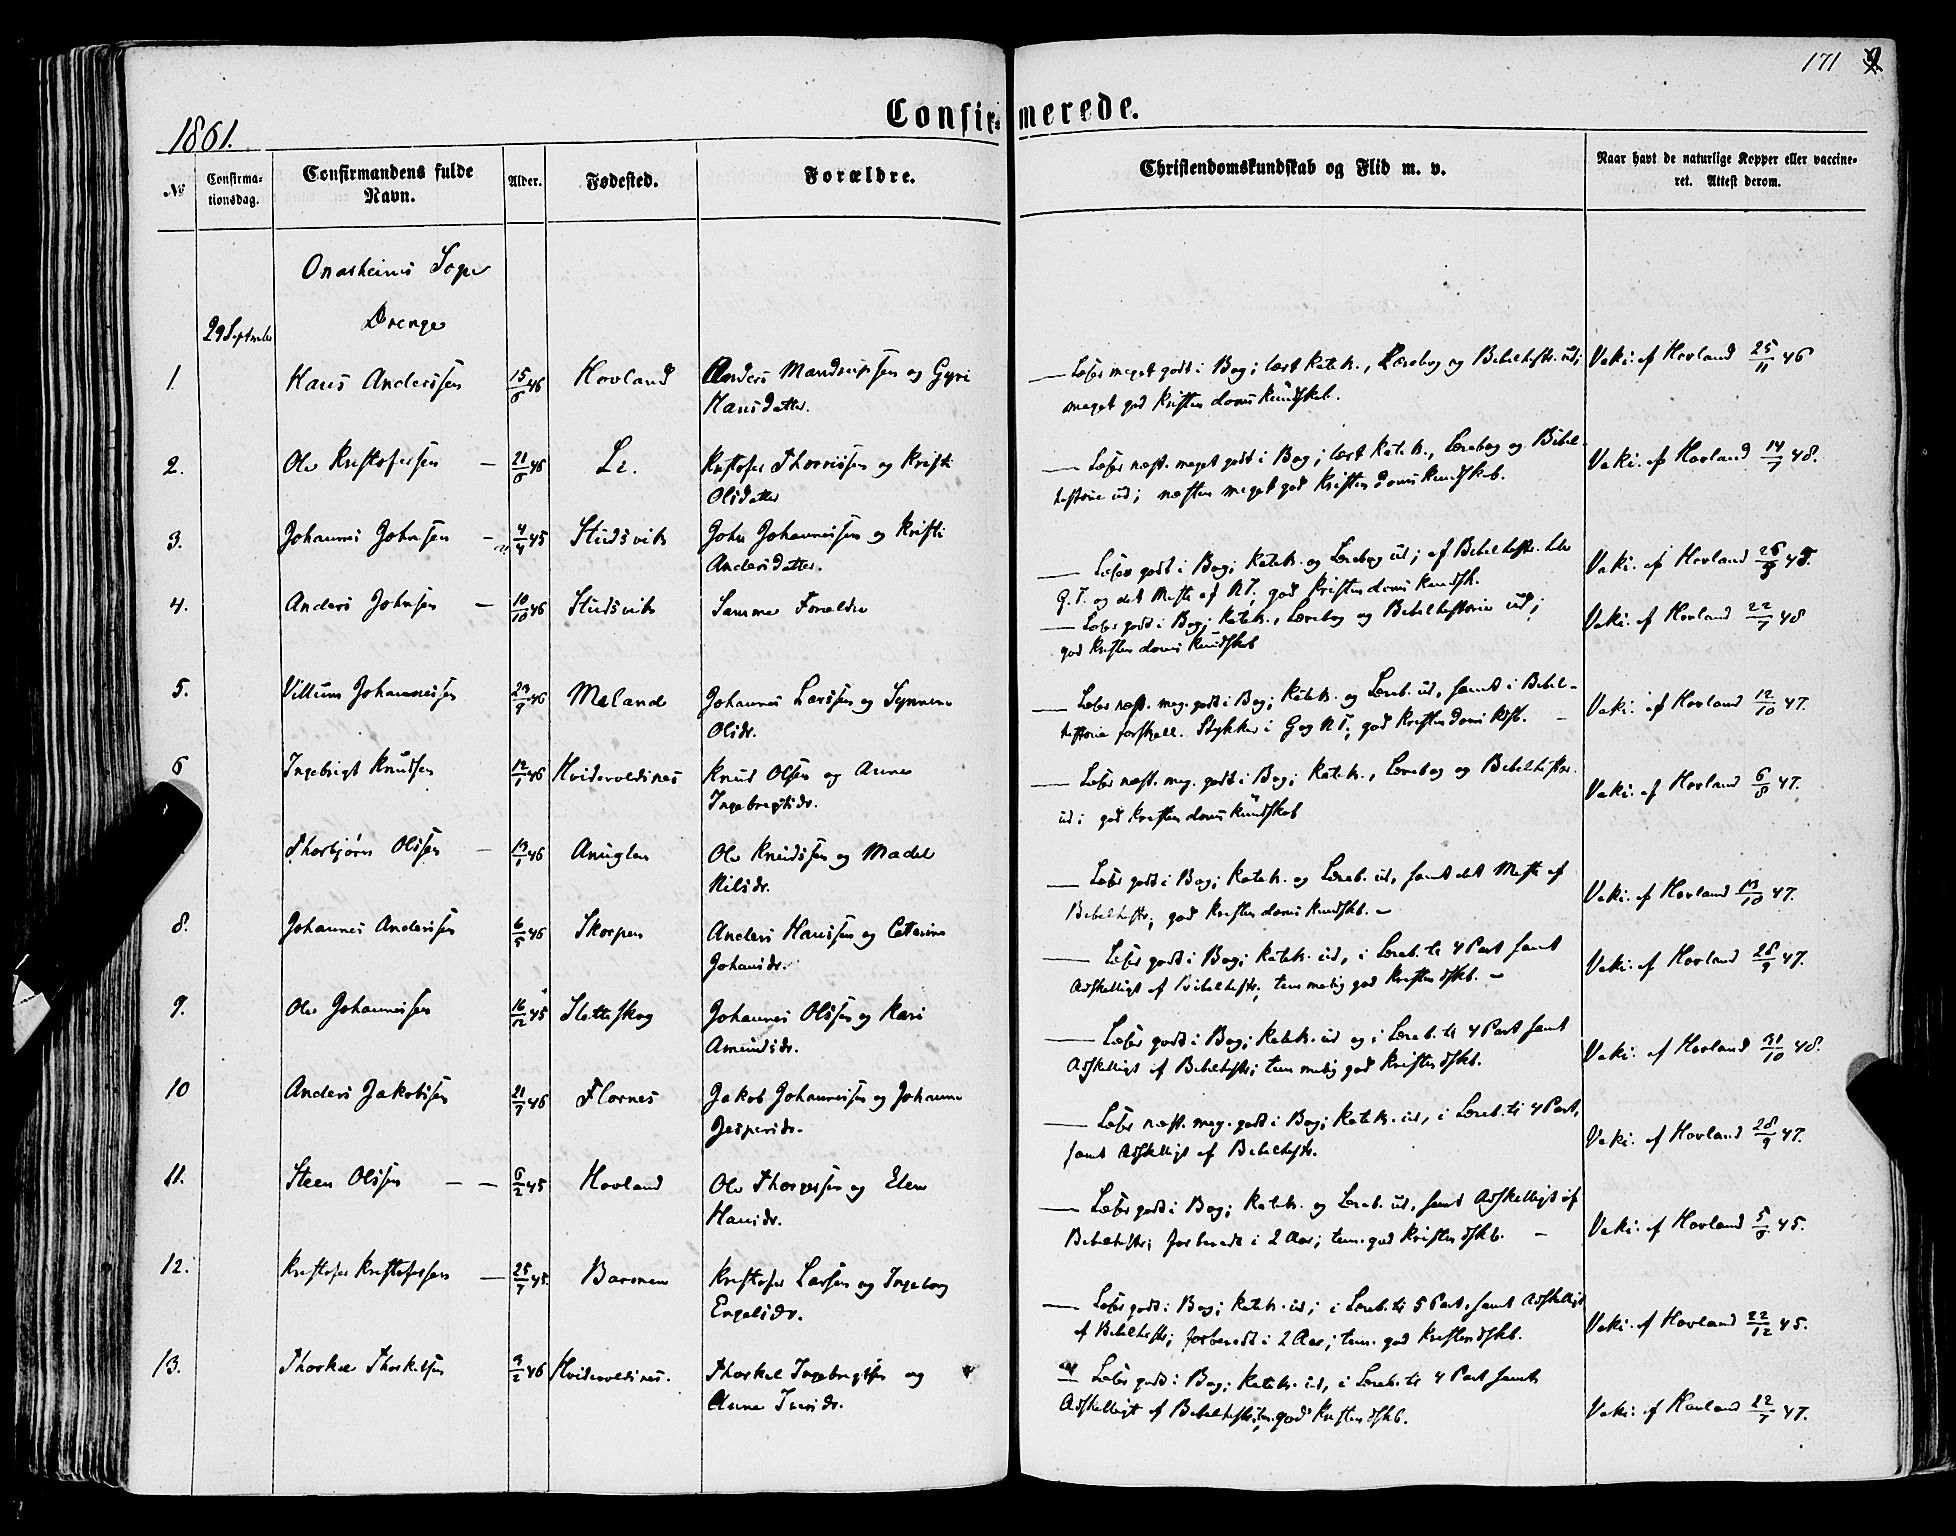 171
Confirmerede.
1861.
№
Confirma-
tionsdag.
Confirmandens fulde
Navn.
Alder.
Fødested.
Forældre.
Christendomskundskab og Flid m. v.
Naar havt de naturlige Kopper eller vaccine-
ret. Attest derom.
Onarheims Sogn
Drenge
29 September
1. Hans Anderssen 15/6 46 Hovland Anders Mandrupssen og Gyri
Hansdatter.
— Læser meget godt i Bog; lært Katek., Lærebog og Bibelhistr. ud;
meget god Kristendomskundskab.
Vaki. af Hovland 25/11 46
2. Ole Kristofersen — 21/6 46 Le. Kristofer Thorrissen og Kristi
Olsdatter
— Læser næst. meget godt i Bog; lært Katek., Lærebog og Bibel-
historie ud; næsten meget god Kristendomskundskab.
Vaki. af Hovland 14/7 48.
3. Johannes Johnsen — 4/4 45 Studsvik John Johannessen og Kristi
Andersdatter.
— Læser godt i Bog; Katek. og Lærebog ud; af Bibelhistr. hele
G.T. og det Meste af N.T.; god Kristendomskundsk.
Vaki. af Hovland 26/8 45.
4. Anders Johnsen — 10/10 46 Studsvik Samme Forældre
— Læser godt i Bog; Katek., Lærebog og Bibelhistorie ud;
god Kristendomskundskab
Vaki. af Hovland 22/7 48
5. Villum Johannessen 29/9 46 Meland Johannes Larssen og Synneve
Olsdr.
— Læser næst. meg. godt i Bog; Katek. og Læreb. ud, samt i Bibel-
historie forskjell. Stykker i G og N.T.; god Kristendomskdsk. —
Vaki. af Hovland 12/10 47.
6 Ingebrigt Knudsen 12/1 46 Hvidervoldsnes Knud Olsen og Anne
Ingebregtsdr.
— Læser næst. meg. godt i Bog; Katek., Lærebog og Bibelhistor.
ud; god Kristendomskundskab
Vaki. af Hovland 6/8 47.
Thorbjørn Olssen — 19/1 46 Anuglen Ole Knudssen og Madel
Nilsdr.
— Læser godt i Bog; Katek. og Læreb. ud, samt det Meste af
Bibelhistr.; god Kristendomskundskb. —
Vaki. af Hovland 19/10 47.
8. Johannes Anderssen 6/5 46 Skorpen Anders Hanssen og Catterina
Johansdr.
— Læser godt i Bog; Katek. ud, i Læreb. til 4 Part samt
Adskelligt af Bibelhistr.; temmelig god Kristendskb. —
Vaki. af Hovland 28/9 47.
9. Ole Johannessen 16/12 45 Sletteskog Johannes Olssen og Kari
Amundsdr.
— Læser godt i Bog; Katek. ud og i Læreb. til 4 Part samt
Adskelligt af Bibelhistr.; temmelig god Kristendskb.
Vaki. af Hovland 31/10 48.
10 Anders Jakobssen 21/9 46 Flornes Jakob Johannessen og Johanna
Jespersdr.
— Læser næst. meg. godt i Bog; Katek. ud, i Læreb. til 4 Part,
samt Adskelligt af Bibelhistr.
Vaki. af Hovland 28/9 47.
11. Steen Olssen — — 6/2 45 Hovland Ole Thorssen og Elen
Hansdr.
— Læser godt i Bog; Katek. og Læreb. ud, samt Adskelligt af
Bibelhistr; forberedt i 2 Aar; tem. god Kristendskb. —
Vaki. af Hovland 5/8 45.
12. Kristofer Kristofersen — 25/7 45. Baronien Kristofer Larsen og Ingeborg
Engelsdr.
— Læser godt i Bog; Katek. ud; i Læreb. til 5 Part. samt Adskelligt
af Bibelhistr; forberedt i 2 Aar; tem. god Kristendskb.
Vaki. af Hovland 22/12 45.
13. Thorkel Thorkelsen 9/2 46 Hvidervoldsnes. Thorkel Ingebrigtsen og
Anna Iversdr.
— Læser godt i Bog; Katek. ud, i Læreb. til 4 Part samt
Adskelligt af Bibelhistr; tem. god Kristendskb.
Vaki. af Hovland 22/7 47.